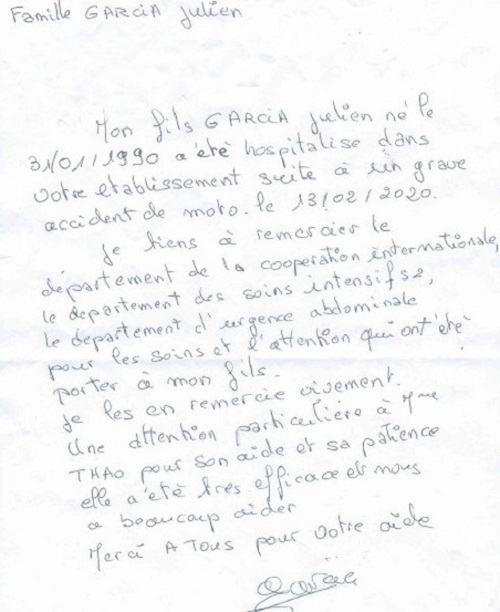 Famille GARCIA Julien
Mon fils GARCIA Julien né le
31/01/1990 a été hospitalise dans
votre etablissement suite à un grave
accident de moto. le 13/02/2020.
Je tiens à remercier le
département de la cooperation internationale,
le departement des soins intensifs 2,
le departement d'urgence abdominale
pour les soins et l'attention qui ont été
porter à mon fils.
Je les en remercie vivement.
Une attention particulière à Mme
THAO pour son aide et sa patience
elle a été très efficace et nous
a beaucoup aider
Merci A TOUS pour votre aide
Garcia